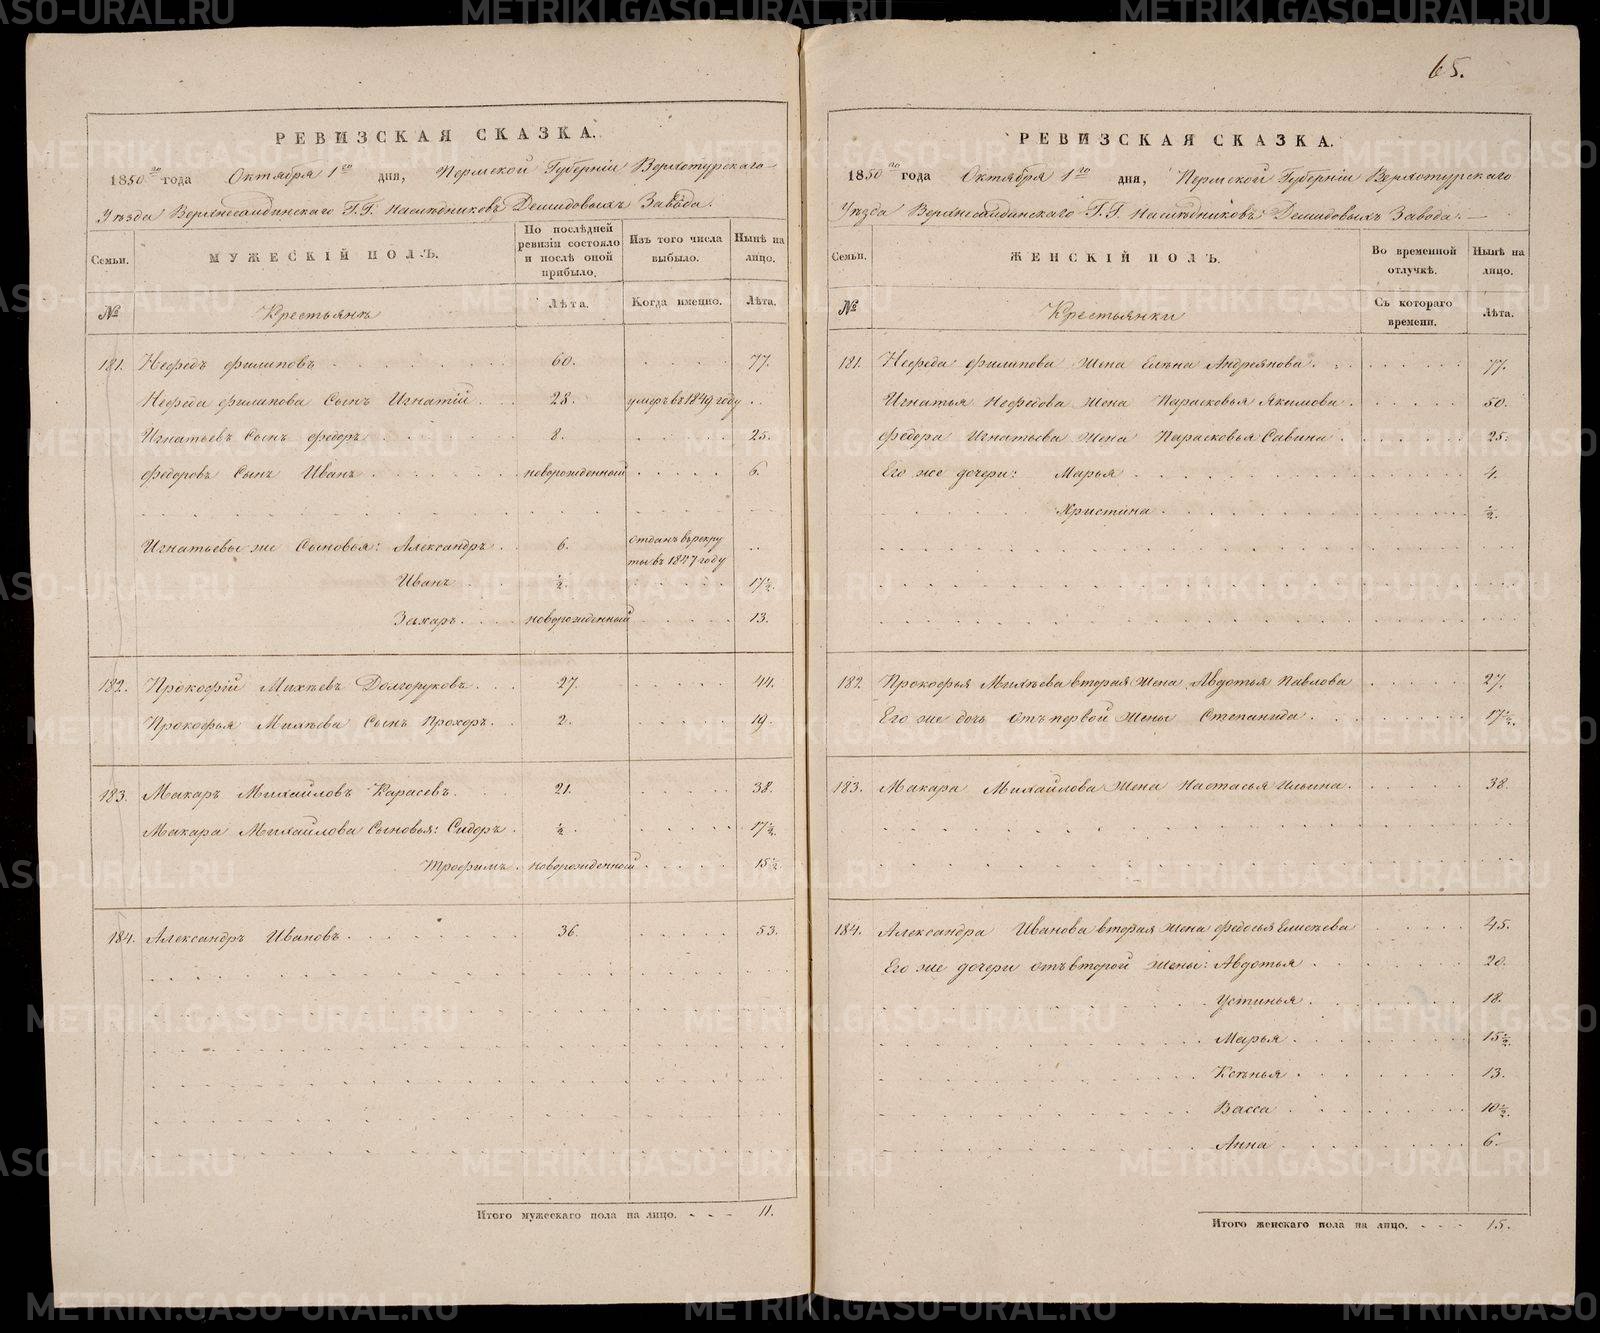 65.
РЕВИЗСКАЯ СКАЗКА.
1850го года Октября 1го дня, Пермской Губерніи Верхотурскаго
Уѣзда Верхнесалдинскаго Г.Г. Наслѣдниковъ Демидовыхъ Завода.
Семьи. МУЖЕСКІЙ ПОЛЪ. По послѣдней ревизіи состояло и послѣ оной прибыло. Изъ того числа выбыло. Нынѣ на лицо.
№ Крестьянъ Лѣта. Когда именно. Лѣта.
181. Нефедъ филиповъ 60. 77.
Нефеда филипова Сынъ Игнатій 28. умеръ въ 1849 году
Игнатьевъ Сынъ федоръ 8. 25.
федоровъ Сынъ Иванъ новорожденный 6.
Игнатьевы же Сыновья: Александръ 6. отданъ въ рекру
ты въ 1847 году
Иванъ ½. 17½.
Захаръ новорожденный 13.
182. Прокофій Михѣевъ Долгоруковъ 27. 44.
Прокофья Михѣева Сынъ Прохоръ 2. 19.
183. Макаръ Михайловъ Карасевъ 21. 38.
Макара Михайлова Сыновья: Сидоръ ½. 17½.
Трофимъ новорожденный 15½
184. Александръ Ивановъ 36. 53.
Итого мужескаго пола на лицо. 11.
РЕВИЗСКАЯ СКАЗКА.
1850го года Октября 1го дня, Пермской Губерніи Верхотурскаго
Уѣзда Верхнесалдинскаго Г.Г. Наслѣдниковъ Демидовыхъ Завода.
Семьи. ЖЕНСКІЙ ПОЛЪ. Во временной отлучкѣ. Нынѣ на лицо.
№ Крестьянки Съ котораго времени. Лѣта.
181. Нефеда филипова жена Елѣна Андреянова 77.
Игнатья Нефедова жена Парасковья Якимова 50.
федора Игнатьева жена Парасковья Савина 25.
Его же дочери: Марья 4.
Христина ½.
182 Прокофья Михѣева вторая жена Авдотья Павлова 27.
Его же дочь отъ первой жены Степанида 17½.
183. Макара Михайлова жена Настасья Ильина 38.
184. Александра Иванова вторая жена федосья Елисѣева 45.
Его же дочери отъ второй жены: Авдотья 20.
Устинья 18.
Марья 15½.
Ксѣнья 13.
Васса 10½.
Анна 6.
Итого женскаго пола на лицо. 15.
METRIKI.GASO-URAL.RU